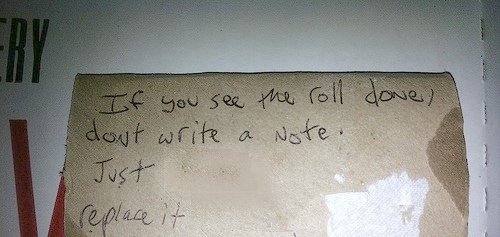 ERY
If you see the roll done,
dont write a Note.
Just
replace it